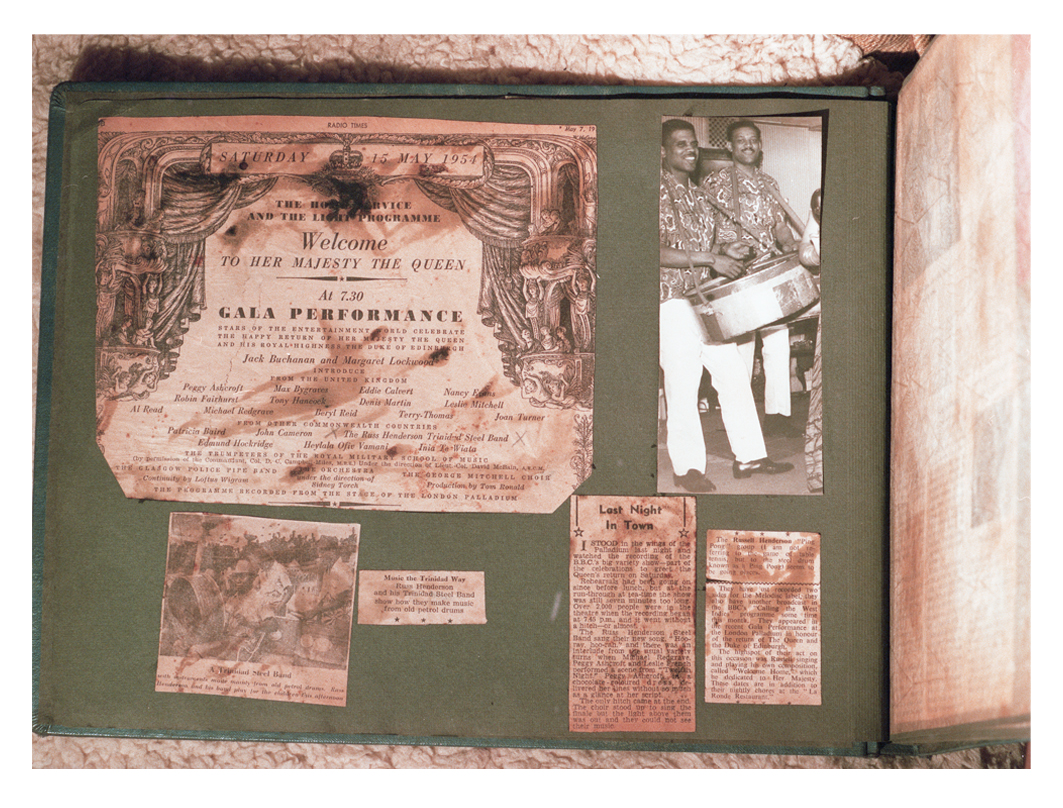 RADIO TIMES
May 7, 19
SATURDAY 15 MAY 1954
THE HOME SERVICE
AND THE LIGHT PROGRAMME
Welcome
TO HER MAJESTY THE QUEEN
At 7.30
GALA PERFORMANCE
STARS OF THE ENTERTAINMENT WORLD CELEBRATE
THE HAPPY RETURN OF HER MAJESTY THE QUEEN
AND HIS ROYAL HIGHNESS THE DUKE OF EDINBURGH
Jack Buchanan and Margaret Lockwood
INTRODUCE
FROM THE UNITED KINGDOM
Peggy Ashcroft Max Bygraves Eddie Calvert Nancy Evans
Robin Fairhurst Tony Hancock Denis Martin Leslie Mitchell
Al Read Michael Redgrave Beryl Reid Terry-Thomas Joan Turner
FROM OTHER COMMONWEALTH COUNTRIES
Patricia Baird John Cameron X The Russ Henderson Trinidad Steel Band X
Edmund Hockridge Heylala Ofie Vamani Inia Te Wiata
THE TRUMPETERS OF THE ROYAL MILITARY SCHOOL OF MUSIC
(by permission of the Commandant, Col. D. C. Campbell Miles, M.B.E.) Under the direction of Lieut.-Col. David McBain, A.R.C.M.
THE GLASGOW POLICE PIPE BAND THE ORCHESTRA THE GEORGE MITCHELL CHOIR
Continuity by Loftus Wigram under the direction of Production by Tom Ronald
Sidney Torch
THE PROGRAMME RECORDED FROM THE STAGE OF THE LONDON PALLADIUM
A Trinidad Steel Band
with instruments made mainly from old petrol drums. Russ
Henderson and his band play for the children this afternoon
Music the Trinidad Way
Russ Henderson
and his Trinidad Steel Band
show how they make music
from old petrol drums
Last Night
In Town
I STOOD in the wings of the
Palladium last night and
watched the recording of the
B.B.C.'s big variety show—part of
the celebrations to greet the
Queen's return on Saturday.
Rehearsals had been going on
since before lunch, but at the
run-through at tea-time the show
was still seven minutes too long.
Over 2,000 people were in the
theatre when the recording began
at 7.45 p.m. and it went without
a hitch—or almost.
The Russ Henderson Steel
Band sang their new song,
and there was an
interlude from the usual variety
turns when Michael Redgrave,
Peggy Ashcroft and Leslie
performed a scene from
Night." Peggy Ashcroft, in a
chocolate coloured dress, delivered
her lines without so much
as a glance at her script.
The only hitch came at the end.
The choir stood up to sing the
finale but the light above them
was out and they could not see
their music.
The Russell Henderson "Ping
Pong" group (I am not
referring to the game of table
tennis, but to the steel drum
known as a Ping Pong)
They have just recorded two
sides for the Melodisc label, they
also have another broadcast in
the BBC's "Calling the West
Indies" programme some time
this month. They appeared at
the recent Gala Performance at
the London Palladium in honour
of the return of The Queen and
the Duke of Edinburgh.
The highspot of their act on
this occasion was Russell singing
and playing his own composition,
called "Welcome Home," which
he dedicated to Her Majesty.
These dates are in addition to
their nightly chores at the "La
Ronde Restaurant."